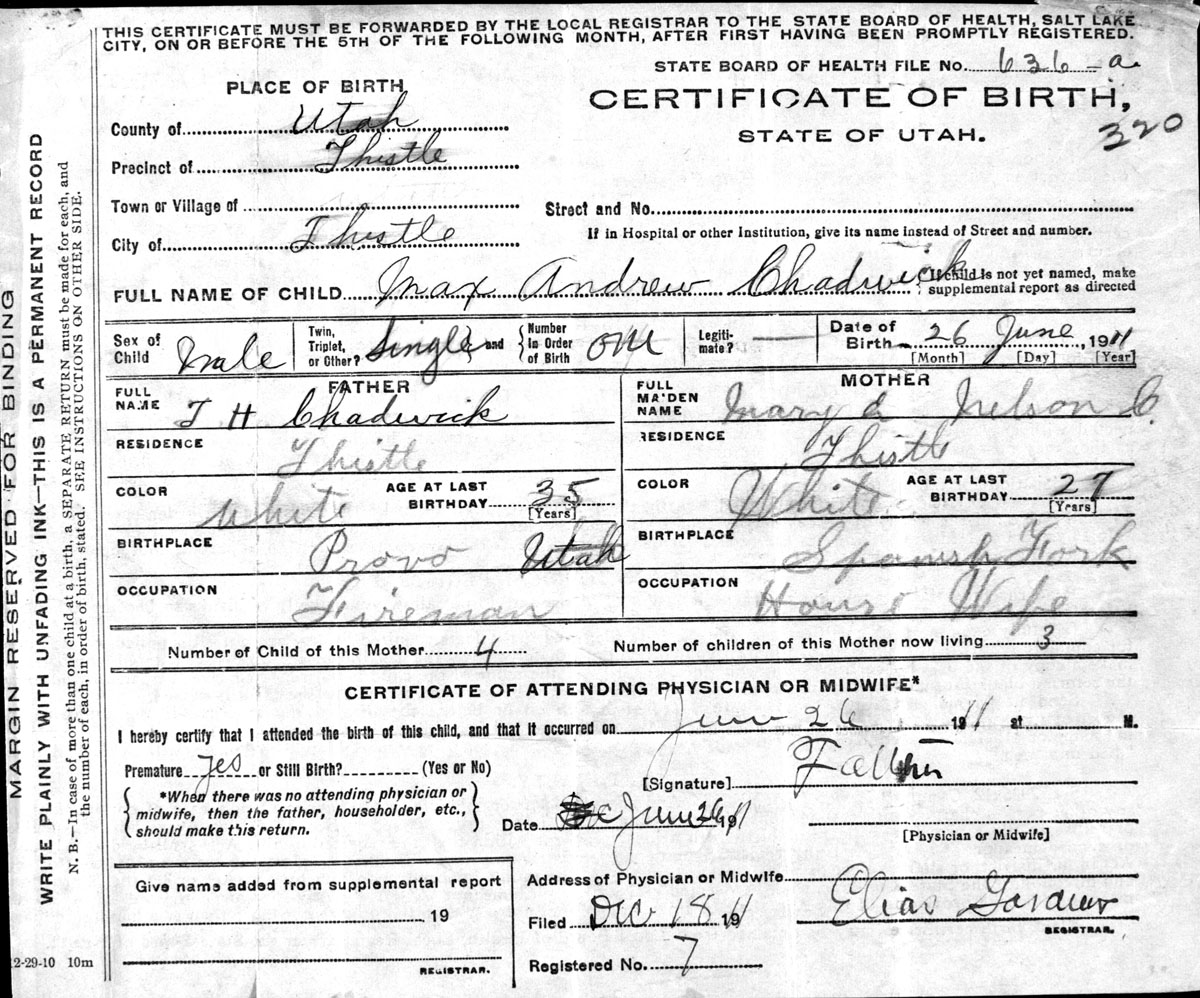 THIS CERTIFICATE MUST BE FORWARDED BY THE LOCAL REGISTRAR TO THE STATE BOARD OF HEALTH, SALT LAKE
CITY, ON OR BEFORE THE 5TH OF THE FOLLOWING MONTH, AFTER FIRST HAVING BEEN PROMPTLY REGISTERED.
STATE BOARD OF HEALTH FILE NO. 636-a
PLACE OF BIRTH
CERTIFICATE OF BIRTH,
320
STATE OF UTAH.
County of Utah
Precinct of Thistle
Town or Village of
Street and No.
City of Thistle
If in Hospital or other Institution, give its name instead of Street and number.
FULL NAME OF CHILD Max Andrew Chadwick
{If child is not yet named, make
supplemental report as directed
Sex of Child Male
Twin, Triplet, or Other? Single and
Number In Order of Birth one
Legiti-mate?
Date of Birth 26 June 1911
[Month] [Day] [Year]
FATHER
FULL NAME T H Chadwick
RESIDENCE Thistle
COLOR White
AGE AT LAST BIRTHDAY 35
[Years]
BIRTHPLACE Provo Utah
OCCUPATION Fireman
MOTHER
FULL MAIDEN NAME Mary E Nelson C.
RESIDENCE Thistle
COLOR White
AGE AT LAST BIRTHDAY 27
[Years]
BIRTHPLACE Spanish Fork
OCCUPATION House Wife
Number of Child of this Mother 4
Number of children of this Mother now living 3
CERTIFICATE OF ATTENDING PHYSICIAN OR MIDWIFE*
I hereby certify that I attended the birth of this child, and that it occurred on June 26 1911 at M.
Premature yes or Still Birth? (Yes or No)
[Signature] Father
*When there was no attending physician or
midwife, then the father, householder, etc.,
should make this return.
Date June 26 1911
[Physician or Midwife]
Give name added from supplemental report
19
REGISTRAR.
Address of Physician or Midwife
Filed Dec 18 1911
Elias Gardner
REGISTRAR.
Registered No. 7
2-29-10 10m
MARGIN RESERVED FOR BINDING
WRITE PLAINLY WITH UNFADING INK—THIS IS A PERMANENT RECORD
N. B.—In case of more than one child at a birth, a SEPARATE RETURN must be made for each, and
the number of each, in order of birth, stated. SEE INSTRUCTIONS ON OTHER SIDE.